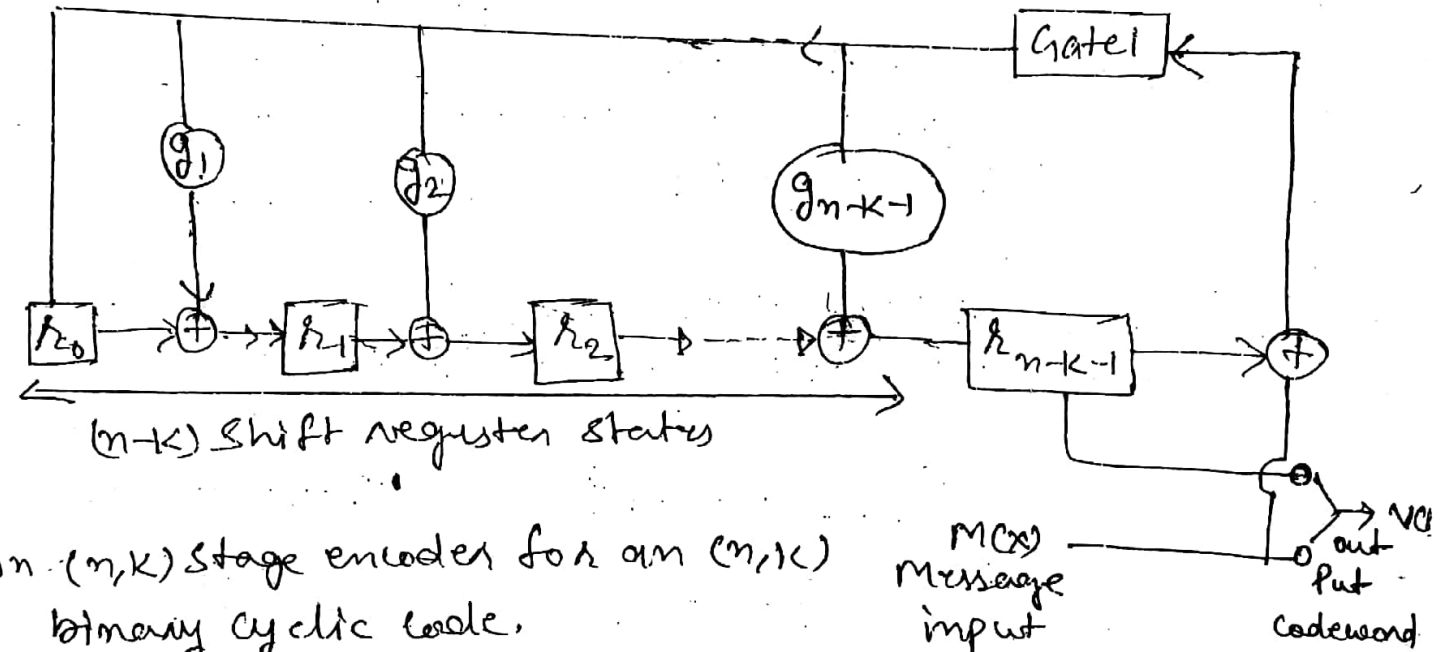 Gate1
g1
g2
gn-k-1
r0
r1
r2
rn-k-1
(n-k) Shift register states
(n,k) stage encoder for an (n,k)
binary cyclic code.
M(x)
Message
input
out
Put
codeword